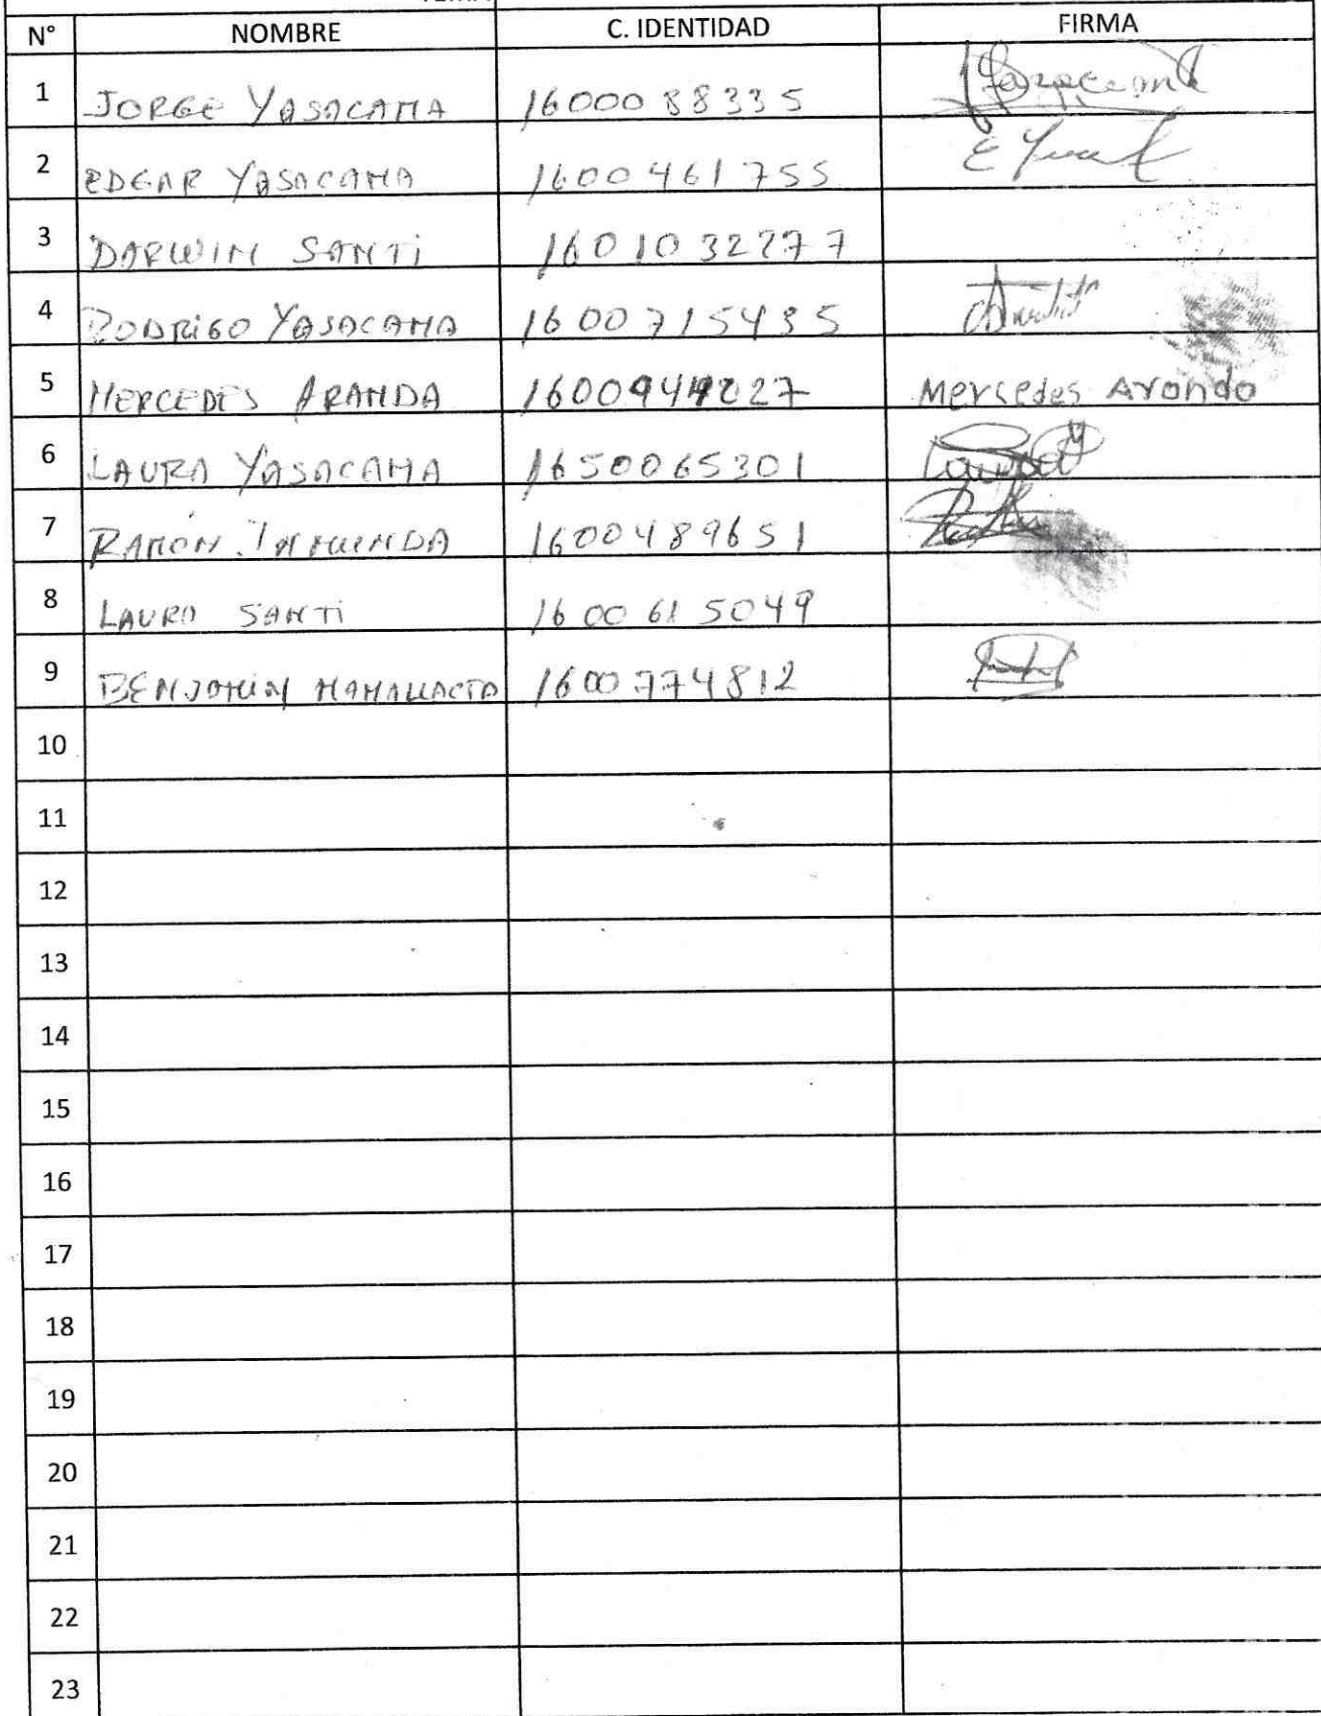 N° NOMBRE C. IDENTIDAD FIRMA
1 JORGE YASACAMA 1600088335
2 EDGAR YASACAMA 1600461755
3 DARWIN SANTI 1601032277
4 RODRIGO YASACAMA 1600715435
5 MERCEDES ARANDA 1600944227 Mercedes Arondo
6 LAURA YASACAMA 1650065301 Laura
7 RAMON 1600489651
8 LAURA SANTI 1600615049
9 BENJAMIN MAMALLACTA 1600774812
10
11
12
13
14
15
16
17
18
19
20
21
22
23